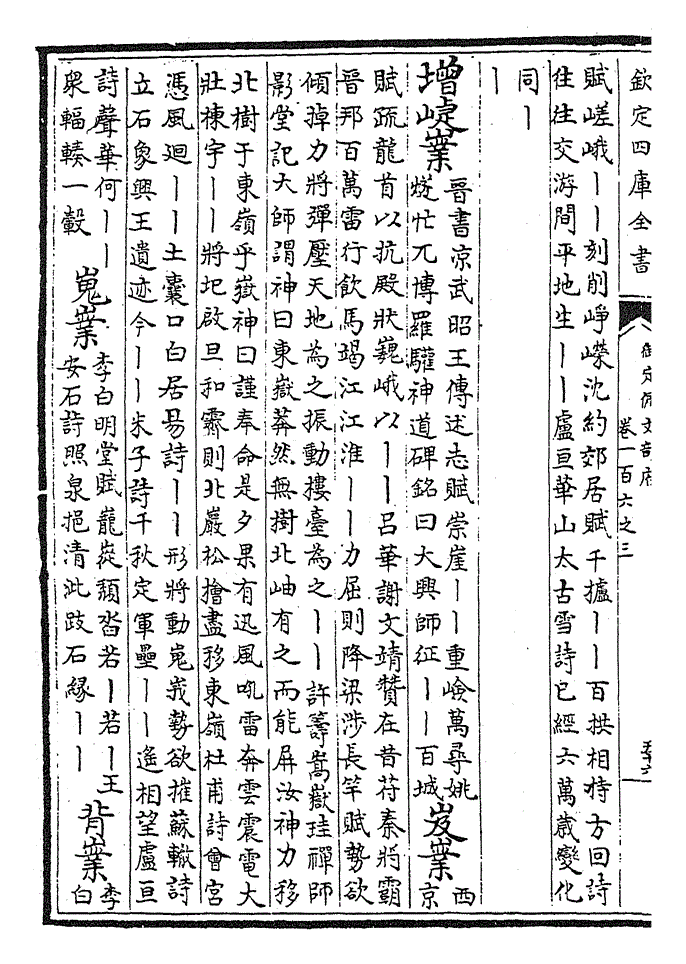 欽定四庫全書
御定佩文韻府
卷一百六之三
賦嵯峨丨丨刻削崢嶸沈約郊居賦千櫨丨丨百拱相持方回詩
往往交游間平地生丨丨盧亘華山太古雪詩已經六萬歲變化
同丨
丨
增崨嶪
晉書涼武昭王傳述志賦崇崖丨丨重嶮萬尋姚
燧忙兀博羅驩神道碑銘曰大興師征丨丨百城
岌嶪
西
京
賦疏龍首以抗殿狀巍峨以丨丨呂華謝文靖贊在昔苻秦將霸
晉邦百萬雷行飲馬竭江江淮丨丨力屈則降梁涉長竿賦勢欲
傾掉力將彈壓天地為之振動樓臺為之丨丨許籌嵩嶽珪禪師
影堂記大師謂神曰東嶽莽然無樹北岫有之而能屏汝神力移
北樹于東嶺乎嶽神曰謹奉命是夕果有迅風吼雷奔雲震電大
壯棟宇丨丨將圮啟旦和霽則北巖松檜盡移東嶺杜甫詩曾宮
憑風迴丨丨土囊口白居易詩丨丨形將動嵬峩勢欲摧蘇轍詩
立石象興王遺迹今丨丨朱子詩千秋定軍壘丨丨遙相望盧亘
詩聲華何丨丨
衆輻輳一轂
嵬嶪
李白明堂賦巃嵸頹沓若丨若丨王
安石詩照泉挹清泚跂石緣丨丨
背嶪
李
白